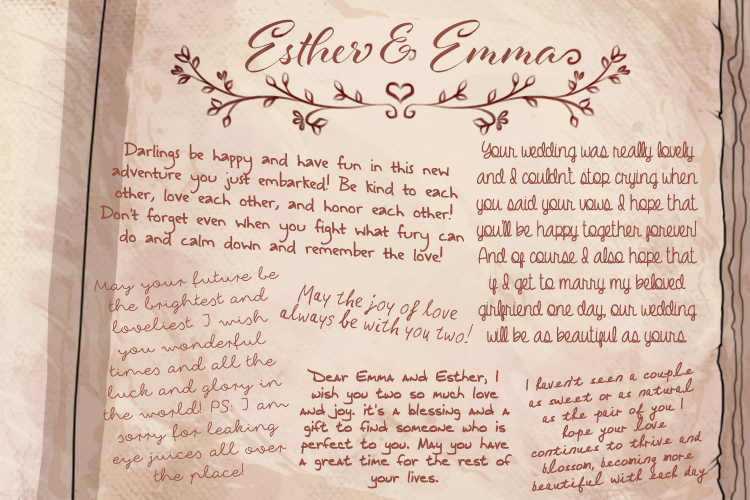 Esther & Emma
Darlings be happy and have fun in this new
adventure you just embarked! Be kind to each
other, love each other, and honor each other!
Don't forget even when you fight what fury can
do and calm down and remember the love!
Your wedding was really lovely
and I couldn't stop crying when
you said your vows. I hope that
you'll be happy together forever!
And of course I also hope that
if I get to marry my beloved
girlfriend one day, our wedding
will be as beautiful as yours.
May your future be
the brightest and
loveliest. I wish
you wonderful
times and all the
luck and glory in
the world! PS: I am
sorry for leaking
eye juices all over
the place!
May the joy of love
always be with you two!
Dear Emma and Esther, I
wish you two so much love
and joy. it's a blessing and a
gift to find someone who is
perfect to you. May you have
a great time for the rest of
your lives.
I haven't seen a couple
as sweet or as natural
as the pair of you I
hope your love
continues to thrive and
blossom, becoming more
beautiful with each day